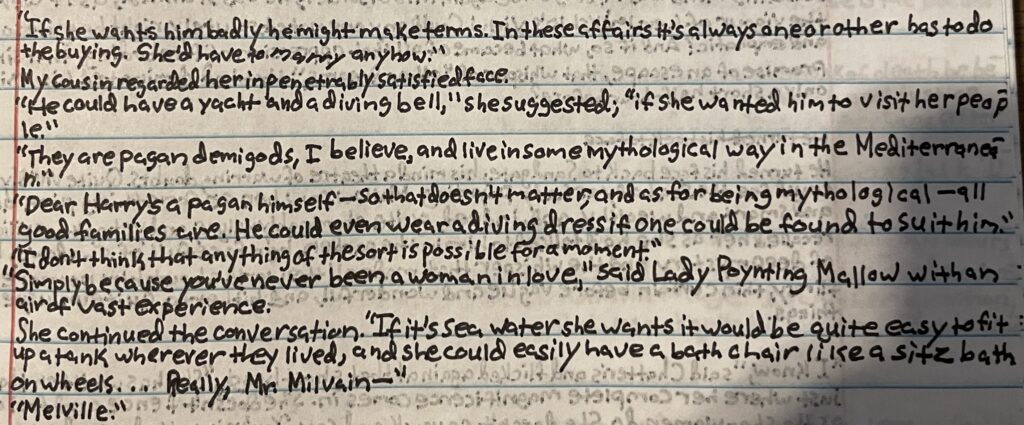 "If she wants him badly he might make terms. In these affairs it's always one or other has to do
the buying. She'd have to marry anyhow."
My cousin regarded her inpenetrably satisfied face.
"He could have a yacht and a diving bell," she suggested; "if she wanted him to visit her peop
le."
"They are pagan demigods, I believe, and live in some mythological way in the Mediterranea
n."
"Dear Harry's a pagan himself—so that doesn't matter, and as for being mythological—all
good families are. He could even wear a diving dress if one could be found to suit him."
"I don't think that anything of the sort is possible for a moment."
"Simply because you've never been a woman in love," said Lady Poynting Mallow with an
air of vast experience.
She continued the conversation. "If it's sea water she wants it would be quite easy to fit
up a tank wherever they lived, and she could easily have a bath chair like a sitz bath
on wheels.... Really, Mr. Milvain—"
"Melville."